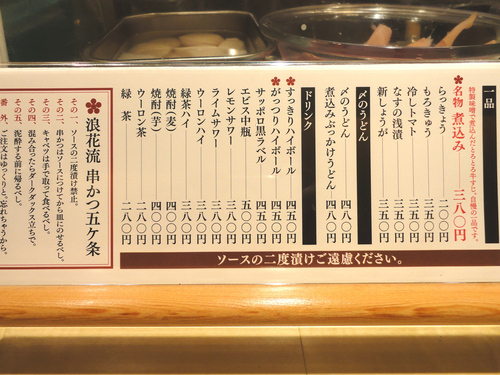 一品
名物 煮込み 三八〇円
特製味噌で煮込んだとろとろ牛すじ、自慢の一品です。
らっきょう 二〇〇円
もろきゅう 三五〇円
冷しトマト 三五〇円
なすの浅漬 三五〇円
新しょうが 三五〇円
〆のうどん
〆のうどん 四八〇円
煮込みぶっかけうどん 四八〇円
ドリンク
すっきりハイボール 四五〇円
がっつりハイボール 四五〇円
サッポロ黒ラベル 四五〇円
ヱビス中瓶 五〇〇円
レモンサワー 三八〇円
ライムサワー 三八〇円
ウーロンハイ 三八〇円
緑茶ハイ 三八〇円
焼酎(麦) 四〇〇円
焼酎(芋) 四〇〇円
ウーロン茶 二八〇円
緑茶 二八〇円
ソースの二度漬けご遠慮ください。
浪花流 串かつ五ケ条
その一、ソースの二度漬け禁止。
その二、串かつはソースにつけてから皿にのせるべし。
その三、キャベツは手で取って食べるべし。
その四、混み合ったらダークダックス立ちで。
その五、泥酔する前に帰るべし。
番外、ご注文はゆっくりと、忘れちゃうから。